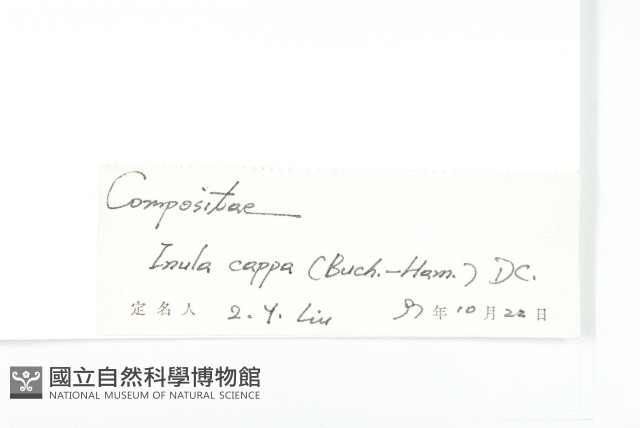 Compositae
Inula cappa (Buch.-Ham.) DC.
定名人 2. Y. Liu 97年10月22日
國立自然科學博物館
NATIONAL MUSEUM OF NATURAL SCIENCE